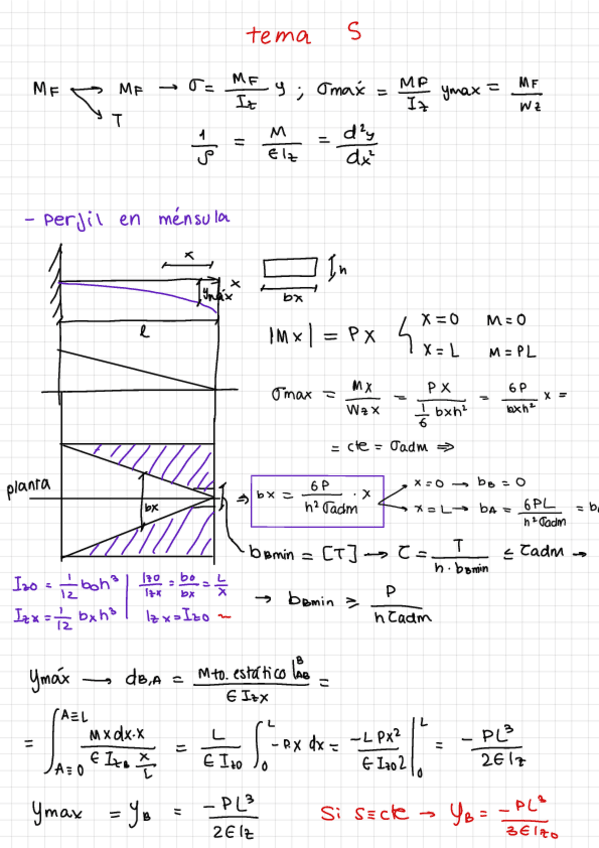 tema 5
M_F → M_F → σ = M_F/I_z y ; σmáx = MF/I_z ymax = M_F/W_z
T
1/ρ = M/EI_z = d²y/dx²
- Perfil en ménsula
x
x
h
ymáx
bx
l
|Mx| = Px { x=0 M=0
x=L M=PL
σmax = Mx/Wzx = Px/(1/6 bxh²) = 6P/bxh² x =
= cte = σadm ⇒
planta
bx
⇒ bx = 6P/h²σadm · x
x=0 → b_B = 0
x=L → b_A = 6PL/h²σadm = b
b_Bmin = [T] → τ = T/h·b_Bmin ≤ τadm →
I_z0 = 1/12 b0h³ | I_z0/I_zx = b0/bx = L/x
I_zx = 1/12 bxh³ | I_zx = I_z0
→ b_Bmin ≥ P/hτadm
ymáx → d_B,A = Mto. estático|_AB^B / EI_zx =
= ∫_{A≡0}^{A≡L} Mxdx·x / EI_z x/L = L/EI_z0 ∫_0^L -Px dx = -LPx²/EI_z0 2 |_0^L = -PL³/2EI_z
ymax = y_B = -PL³/2EI_z
Si s≡cte → y_B = -PL³/3EI_z0